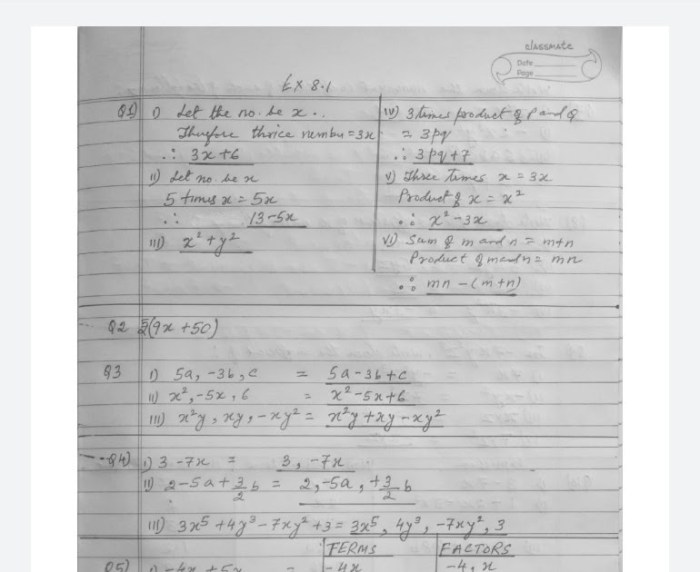 classmate
Date
Page
Ex 8.1
Q1) i) Let the no. be x.
Therefore thrice number = 3x
∴ 3x+6
ii) Let no. be x
5 times x = 5x
∴ 13-5x
iii) x²+y²
iv) 3 times product of P and Q
= 3pq
∴ 3pq+7
v) Three times x = 3x
Product of x = x²
∴ x²-3x
vi) Sum of m and n = m+n
Product of m and n = mn
∴ mn-(m+n)
Q2 (9x+50)
Q3 i) 5a, -3b, c = 5a-3b+c
ii) x², -5x, 6 = x²-5x+6
iii) x²y, xy, -xy² = x²y+xy-xy²
Q4) i) 3-7x = 3, -7x
ii) 2-5a+3/2 b = 2, -5a, +3/2 b
iii) 3x⁵+4y³-7xy²+3 = 3x⁵, 4y³, -7xy², 3
TERMS FACTORS
Q5) i) -4x+5y = -4x -4, x